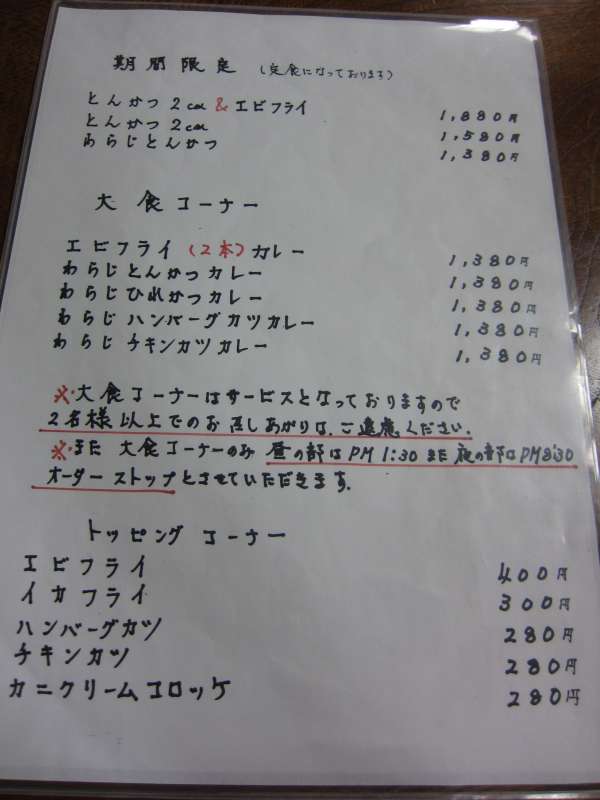 期間限定 (定食になっております)
とんかつ2コ & エビフライ 1,880円
とんかつ2コ 1,580円
わらじとんかつ 1,380円
大食コーナー
エビフライ(2本)カレー 1,380円
わらじとんかつカレー 1,380円
わらじひれかつカレー 1,380円
わらじハンバーグカツカレー 1,380円
わらじチキンカツカレー 1,380円
※・大食コーナーはサービスとなっておりますので
2名様以上でのお召しあがりは、ご遠慮ください。
※・また 大食コーナーのみ 昼の部はPM1:30 また 夜の部はPM8:30
オーダーストップとさせていただきます。
トッピングコーナー
エビフライ 400円
イカフライ 300円
ハンバーグカツ 280円
チキンカツ 280円
カニクリームコロッケ 280円